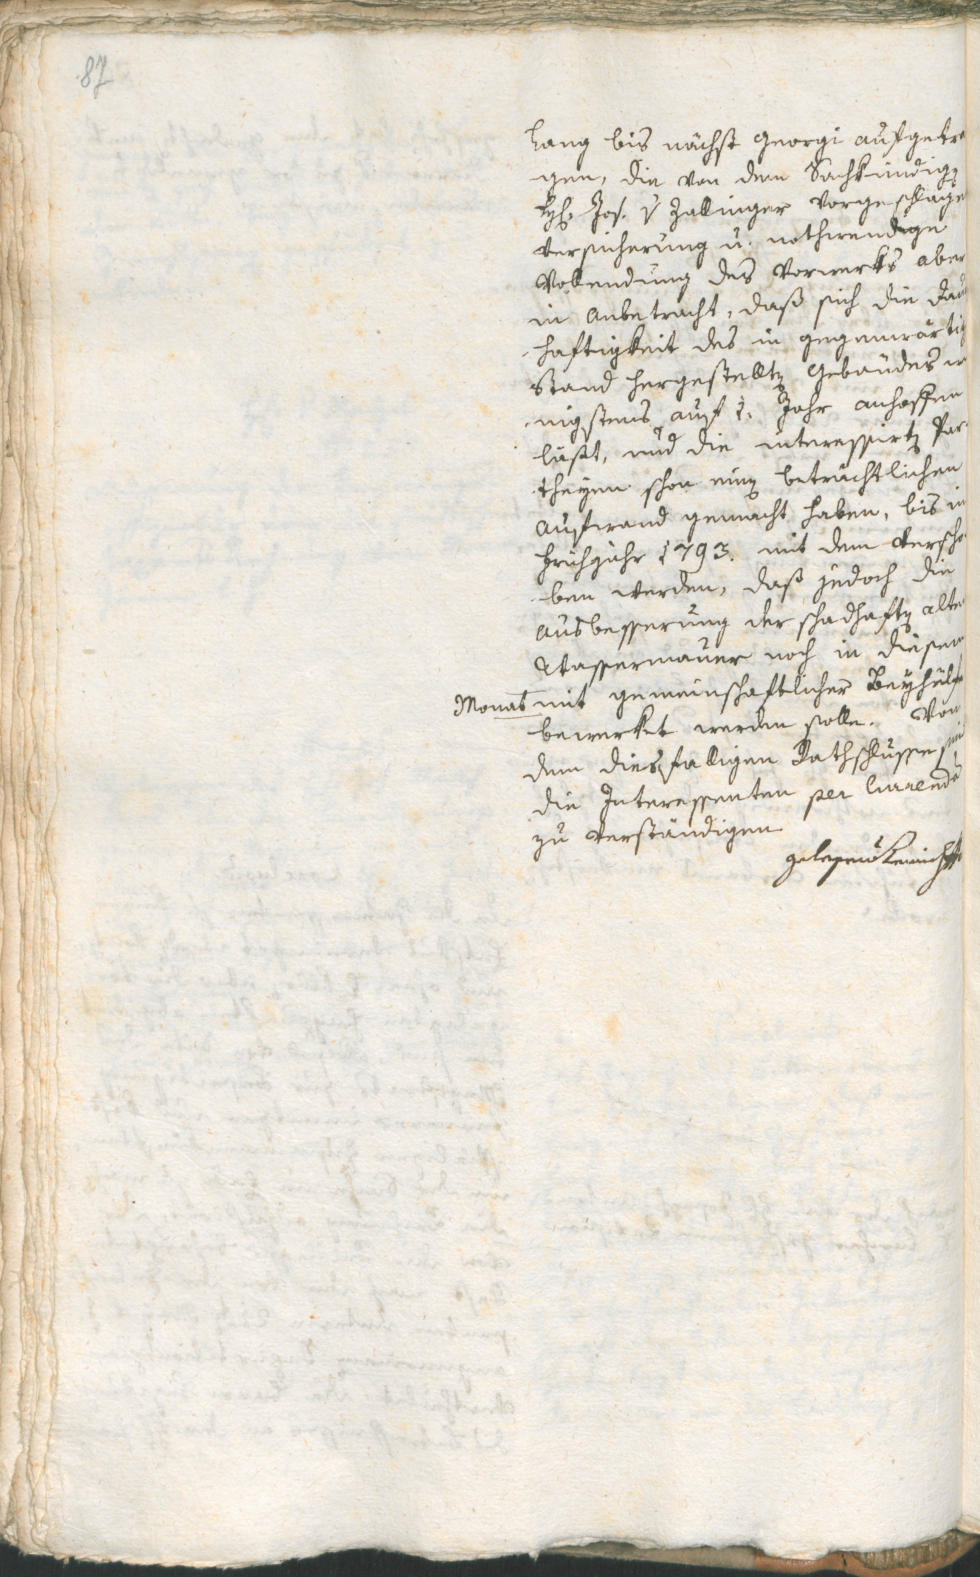 87
hang bis nächst Georgi aufgetra
gen, die von dem Sachkündig
H. Jos. v Zallinger vorgeschlage
versicherung u. nothwendige
Vollendung des Vorwerks aber
in anbetracht, daß sich die Dau
haftigkeit des in gegenwärtig
Stand hergestellt Gebäudes w
nigstens auf 1. Jahr anhoffen
läßt, und die interessirt Par
theyen schon ein beträchtlichen
Aufwand gemacht haben, bis in
Frühjahr 1793. mit dem verscho
ben werden, daß jedoch die
Ausbesserung der schadhaft alte
Wassermauer noch in diesem
Monat mit gemeinschaftlicher Beyhülfe
bewerket werden solle. Von
dem diesfälligen Rathschlusse
die Interessenten per Currenda
zu verständigen